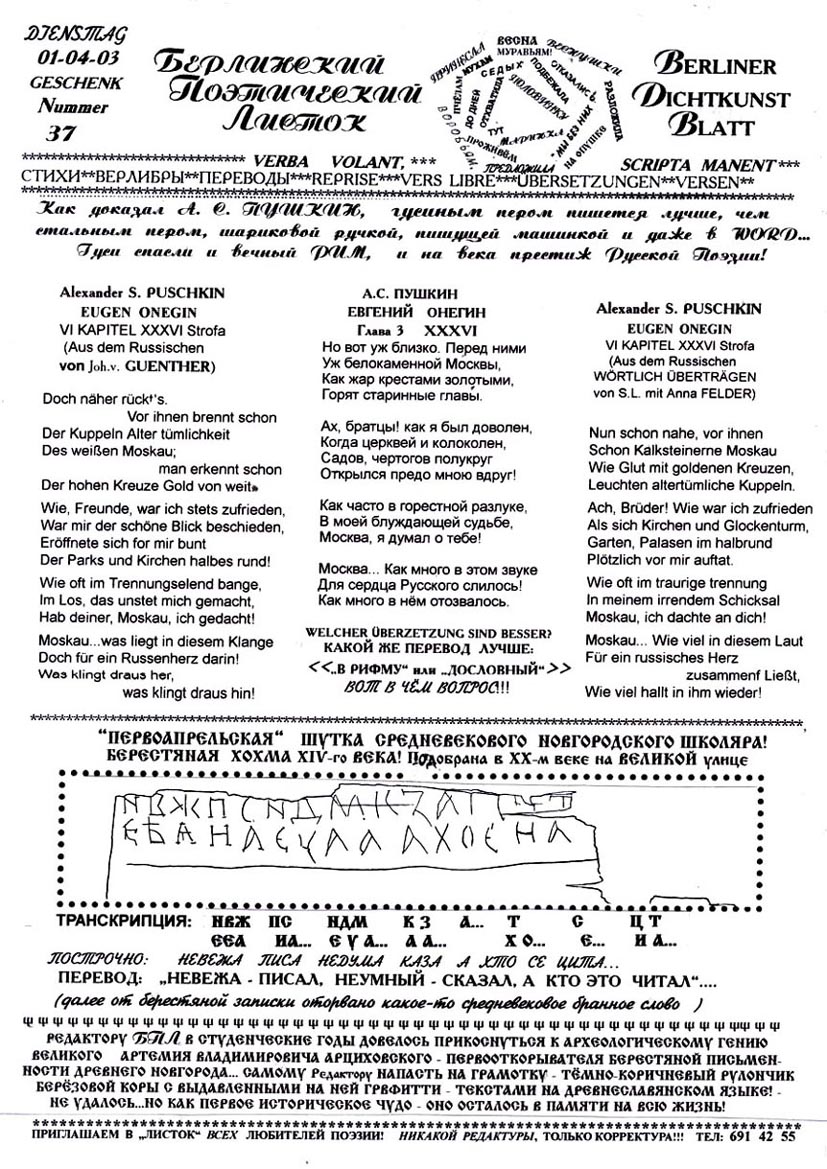 DIENSTAG
01-04-03
GESCHENK
Nummer
37
Берлинский
Поэтический
Листок
ВЕСНА
МУРАВЬЯМ!
ПЧЁЛАМ
МУХАМ
СЕДЫХ
ДО ДНЕЙ
ОТХВАТИЛА
ПОДБЕЖАЛА
ОТКАЗАЛИСЬ
РАЗЛОЖИЛА
ПОЛОВИНКУ
ВОРОБЬЯМ.
ТУТ
МАРИНКА
ПРОЖИВЁМ
МЫ БЕЗ НИХ
НА ОПУШКЕ
ПРЕДЛОЖИЛА
BERLINER
DICHTKUNST
BLATT
************************** VERBA VOLANT, *** SCRIPTA MANENT***
СТИХИ**ВЕРЛИБРЫ**ПЕРЕВОДЫ***REPRISE***VERS LIBRE***ÜBERSETZUNGEN**VERSEN**
Как доказал А. С. ПУШКИН, гусиным пером пишется лучше, чем
стальным пером, шариковой ручкой, пишущей машинкой и даже в WORD...
Гуси спасли и вечный РИМ, и на века престиж Русской Поэзии!
Alexander S. PUSCHKIN
EUGEN ONEGIN
VI KAPITEL XXXVI Strofa
(Aus dem Russischen
von Joh.v. GUENTHER)
Doch näher rückt's.
Vor ihnen brennt schon
Der Kuppeln Alter tümlichkeit
Des weißen Moskau;
man erkennt schon
Der hohen Kreuze Gold von weit.
Wie, Freunde, war ich stets zufrieden,
War mir der schöne Blick beschieden,
Eröffnete sich for mir bunt
Der Parks und Kirchen halbes rund!
Wie oft im Trennungselend bange,
Im Los, das unstet mich gemacht,
Hab deiner, Moskau, ich gedacht!
Moskau...was liegt in diesem Klange
Doch für ein Russenherz darin!
Was klingt draus her,
was klingt draus hin!
А.С. ПУШКИН
ЕВГЕНИЙ ОНЕГИН
Глава 3 XXXVI
Но вот уж близко. Перед ними
Уж белокаменной Москвы,
Как жар крестами золотыми,
Горят старинные главы.
Ах, братцы! как я был доволен,
Когда церквей и колоколен,
Садов, чертогов полукруг
Открылся предо мною вдруг!
Как часто в горестной разлуке,
В моей блуждающей судьбе,
Москва, я думал о тебе!
Москва... Как много в этом звуке
Для сердца Русского слилось!
Как много в нём отозвалось.
WELCHER ÜBERZETZUNG SIND BESSER?
КАКОЙ ЖЕ ПЕРЕВОД ЛУЧШЕ:
<<„В РИФМУ" или „ДОСЛОВНЫЙ">>
ВОТ В ЧЁМ ВОПРОС!!!
Alexander S. PUSCHKIN
EUGEN ONEGIN
VI KAPITEL XXXVI Strofa
(Aus dem Russischen
WÖRTLICH ÜBERTRÄGEN
von S.L. mit Anna FELDER)
Nun schon nahe, vor ihnen
Schon Kalksteinerne Moskau
Wie Glut mit goldenen Kreuzen,
Leuchten altertümliche Kuppeln.
Ach, Brüder! Wie war ich zufrieden
Als sich Kirchen und Glockenturm,
Garten, Palasen im halbrund
Plötzlich vor mir auftat.
Wie oft im traurige trennung
In meinem irrendem Schicksal
Moskau, ich dachte an dich!
Moskau... Wie viel in diesem Laut
Für ein russisches Herz
zusammenf Ließt,
Wie viel hallt in ihm wieder!
“ПЕРВОАПРЕЛЬСКАЯ“ ШУТКА СРЕДНЕВЕКОВОГО НОВГОРОДСКОГО ШКОЛЯРА!
БЕРЕСТЯНАЯ ХОХМА XIV-го ВЕКА! Подобрана в XX-м веке на ВЕЛИКОЙ улице
НВЖПСНДМКЗАТСЦТ
ЕЪАНАЕУАААХОЕНА
ТРАНСКРИПЦИЯ: НВЖ ПС НДМ К З А... Т С Ц Т
ЕЕА ИА... Е У А... А А... Х О... Е... И А...
ПОСТРОЧНО: НЕВЕЖА ПИСА НЕДУМА КАЗА А ХТО СЕ ЦИТА...
ПЕРЕВОД: „НЕВЕЖА - ПИСАЛ, НЕУМНЫЙ - СКАЗАЛ, А КТО ЭТО ЧИТАЛ"....
(далее от берестяной записки оторвано какое-то средневековое бранное слово )
РЕДАКТОРУ БПЛ В СТУДЕНЧЕСКИЕ ГОДЫ ДОВЕЛОСЬ ПРИКОСНУТЬСЯ К АРХЕОЛОГИЧЕСКОМУ ГЕНИЮ
ВЕЛИКОГО АРТЕМИЯ ВЛАДИМИРОВИЧА АРЦИХОВСКОГО - ПЕРВООТКОРЫВАТЕЛЯ БЕРЕСТЯНОЙ ПИСЬМЕН-
НОСТИ ДРЕВНЕГО НОВГОРОДА... САМОМУ Редактору НАПАСТЬ НА ГРАМОТКУ - ТЁМНО-КОРИЧНЕВЫЙ РУЛОНЧИК
БЕРЁЗОВОЙ КОРЫ С ВЫДАВЛЕННЫМИ НА НЕЙ ГРВФИТТИ - ТЕКСТАМИ НА ДРЕВНЕСЛАВЯНСКОМ ЯЗЫКЕ! -
НЕ УДАЛОСЬ...НО КАК ПЕРВОЕ ИСТОРИЧЕСКОЕ ЧУДО - ОНО ОСТАЛОСЬ В ПАМЯТИ НА ВСЮ ЖИЗНЬ!
ПРИГЛАШАЕМ В „ЛИСТОК" ВСЕХ ЛЮБИТЕЛЕЙ ПОЭЗИИ! НИКАКОЙ РЕДАКТУРЫ, ТОЛЬКО КОРРЕКТУРА!!! ТЕЛ: 691 42 55